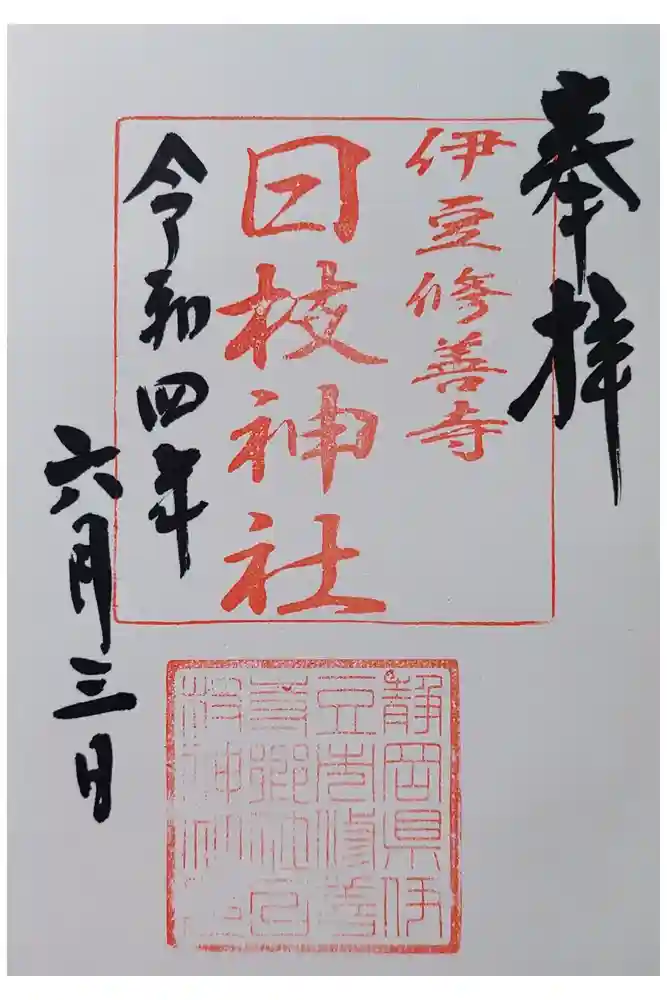 奉拝
伊豆修善寺
日枝神社
令和四年
六月三日
静岡県伊
豆市修善
寺郷社日
枝神社